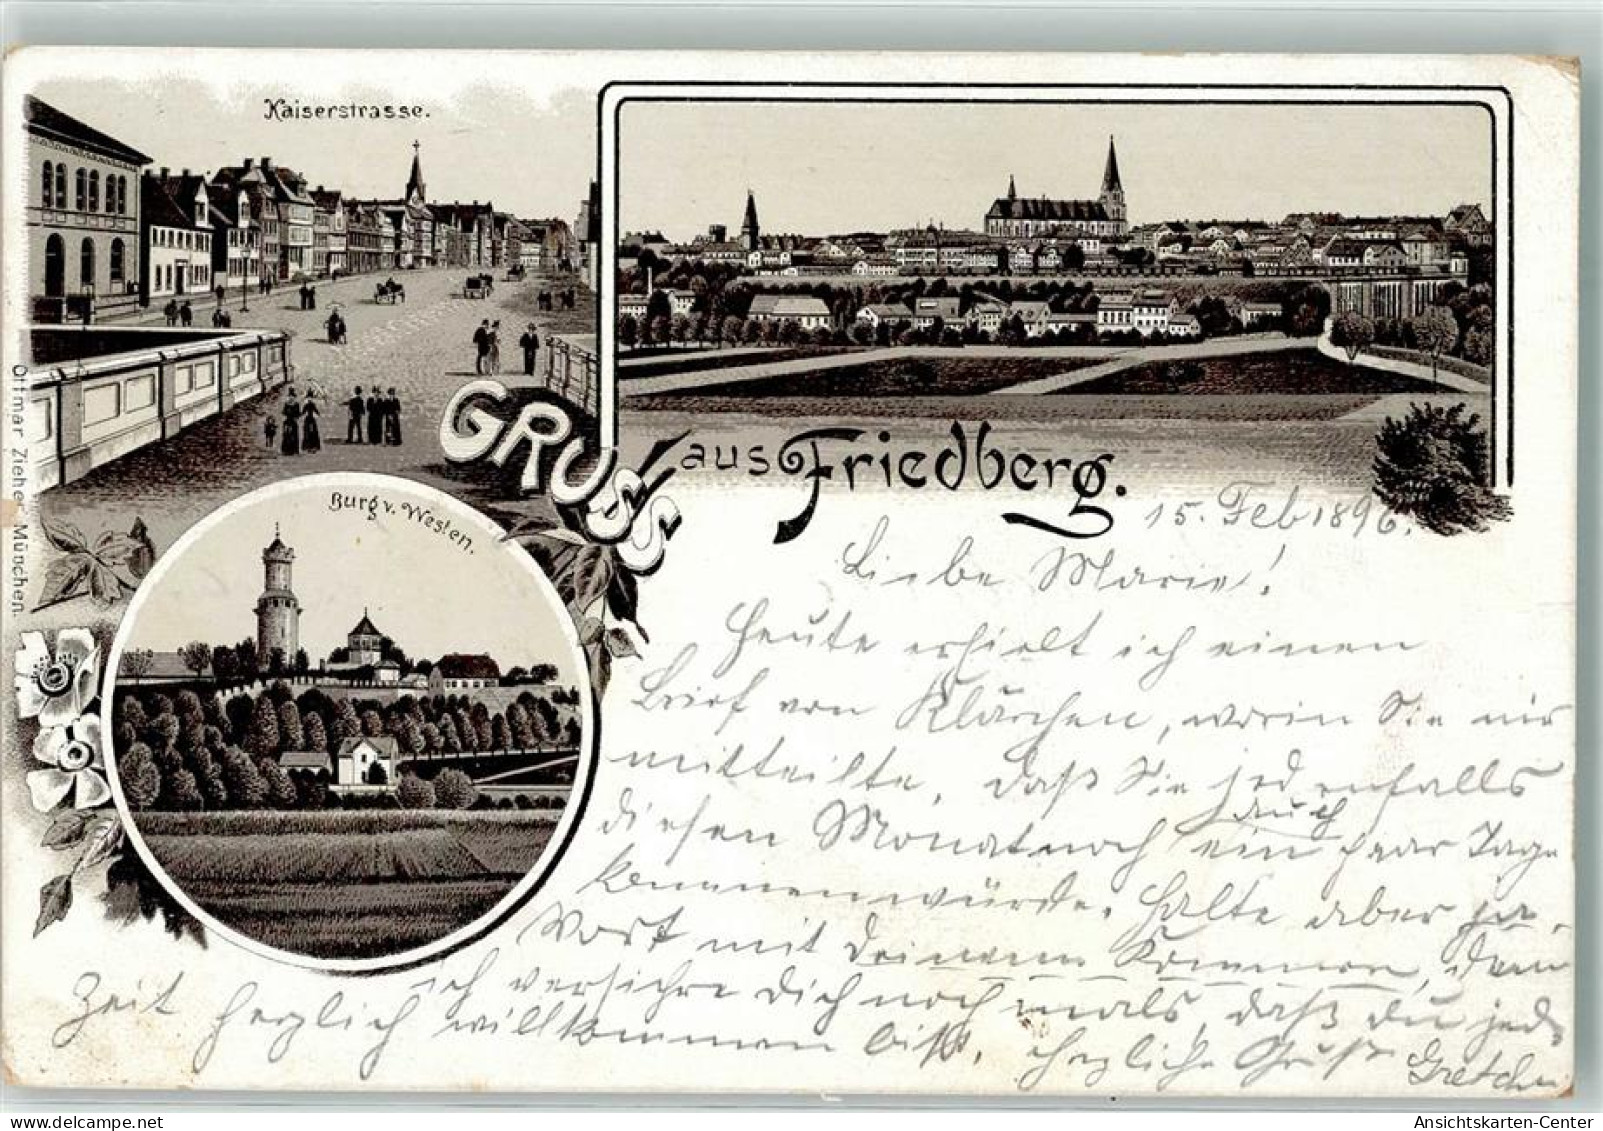 Kaiserstrasse.
GRUSS aus Friedberg.
Burg v. Westen.
Ottmar Zieher München.
15. Feb 1896.
Liebe Marie!
Heute erhielt ich einen
Brief von Klärchen, worin Sie mir
mitteilte, daß Sie jedenfalls
diesen Monat noch auch ein paar Tage
kommen würde. Halte aber ja
Wort mit deinem Kommen, denn
ich versichre dich nochmals, daß du jede
Zeit herzlich willkommen bist. herzliche Gruß Gretchen
Ansichtskarten-Center